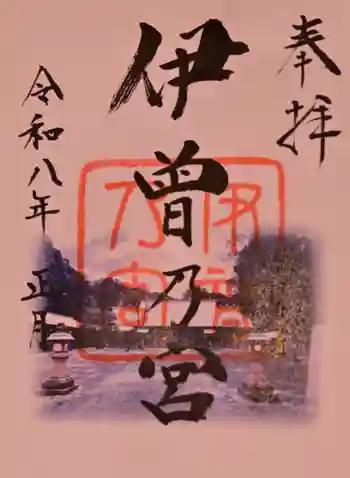 奉拝
伊曽乃宮
伊曽乃宮
令和八年 正月